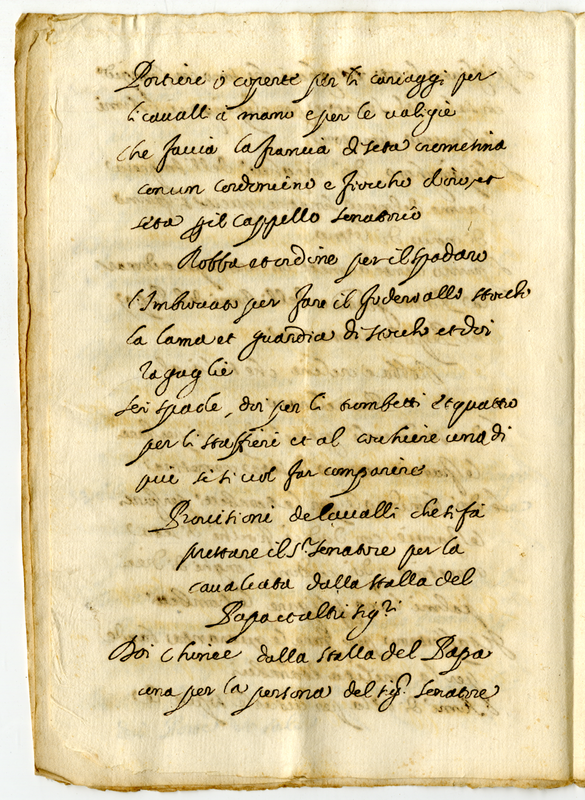 Portiere ò coperte per li cariaggi per
li caualli à mano e per le ualigie
che faccia la francia di seta cremesina
con un cordoncino e fiocchi d'oro, et
seta per il cappello senatorio
Robba et ordine per il spadaro
l'Imbroccato per fare il fodero allo stocho
la lama et guardia di stocho et doi
raguglie
sei spade, doi per li trombetti et quattro
per li staffieri et al cochiere una di
più se si uol far comparire
Prouisioni de Caualli che si fà
prestare il S.r Senatore per la
caualcata dalla stalla del
Papa et altri sig.ri
Doi Chinee dalla stalla del Papa
una per la persona del sig.r Senatore